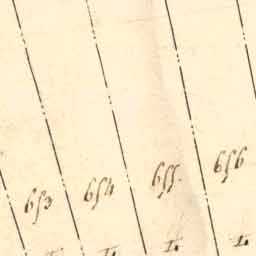 653 654 655 656
I. I. I. I.